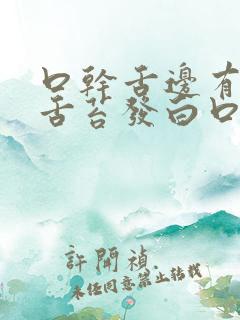 口幹舌邊有
舌苔發白口
許開禎
未经同意禁止转载